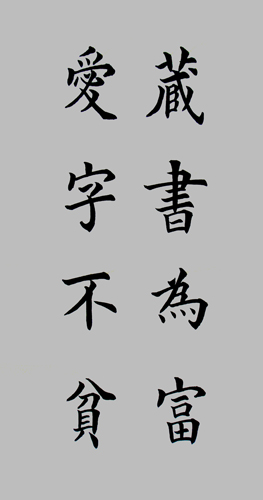 蔵書為富
愛字不貧